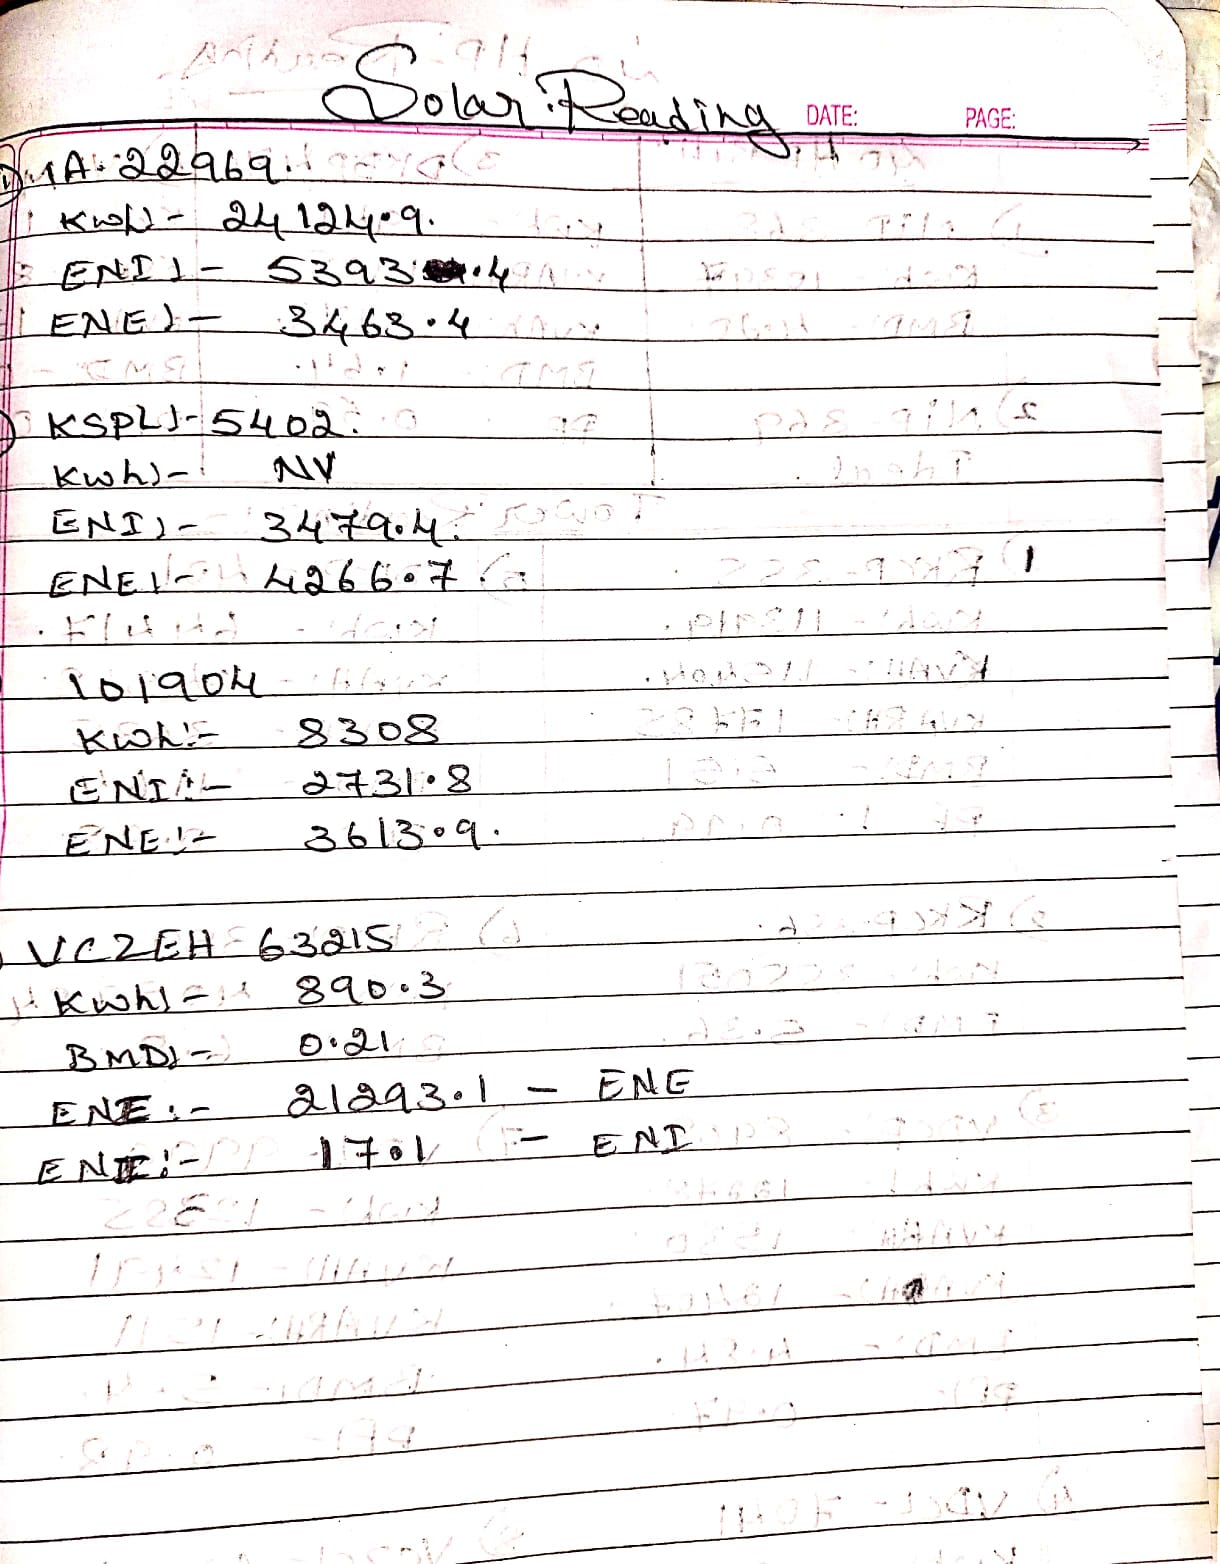 Solar Reading
DATE: PAGE:
1A- 22969.
Kwh:- 24124.9.
ENI:- 5393.4
ENE:- 3463.4
KSPL:- 5402.
Kwh:- NV
ENI:- 3479.4.
ENE:- 4266.7
101904
Kwh:- 8308
ENI:- 2731.8
ENE:- 3613.9.
VCZEH- 63215
Kwh:- 890.3
BMD:- 0.21
ENE:- 21293.1 - ENE
ENI:- 170.1 - ENI